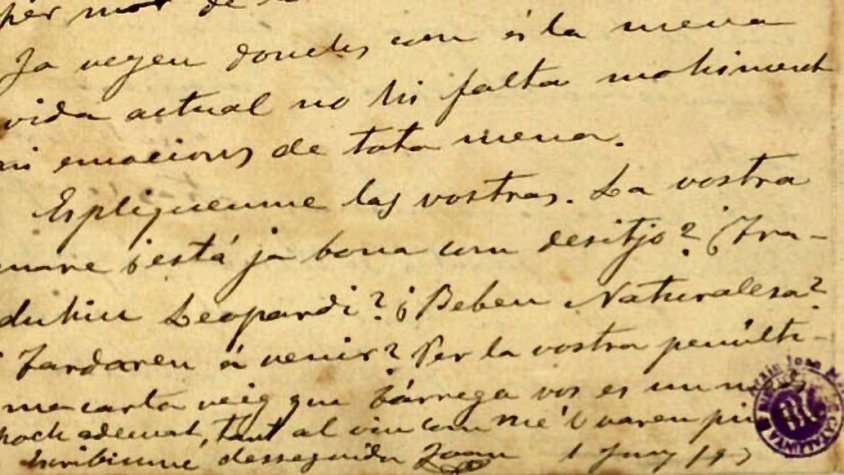 per mor de
Ja veyeu donchs com és la meua
vida actual no hi falta mohiment
ni emocions de tota mena.
Espliqueume las vostras. La vostra
mare ¿está ja bona com desitjo? ¿Tra-
duhiu Leopardi? ¿Beben Naturalesa?
¿Tardareu á venir? Per la vostra penúlti-
ma carta veig que Tárrega vos es un
poch ademat, tant al viu com me'l vareu
Escribiume desseguida Joan 1 Juny